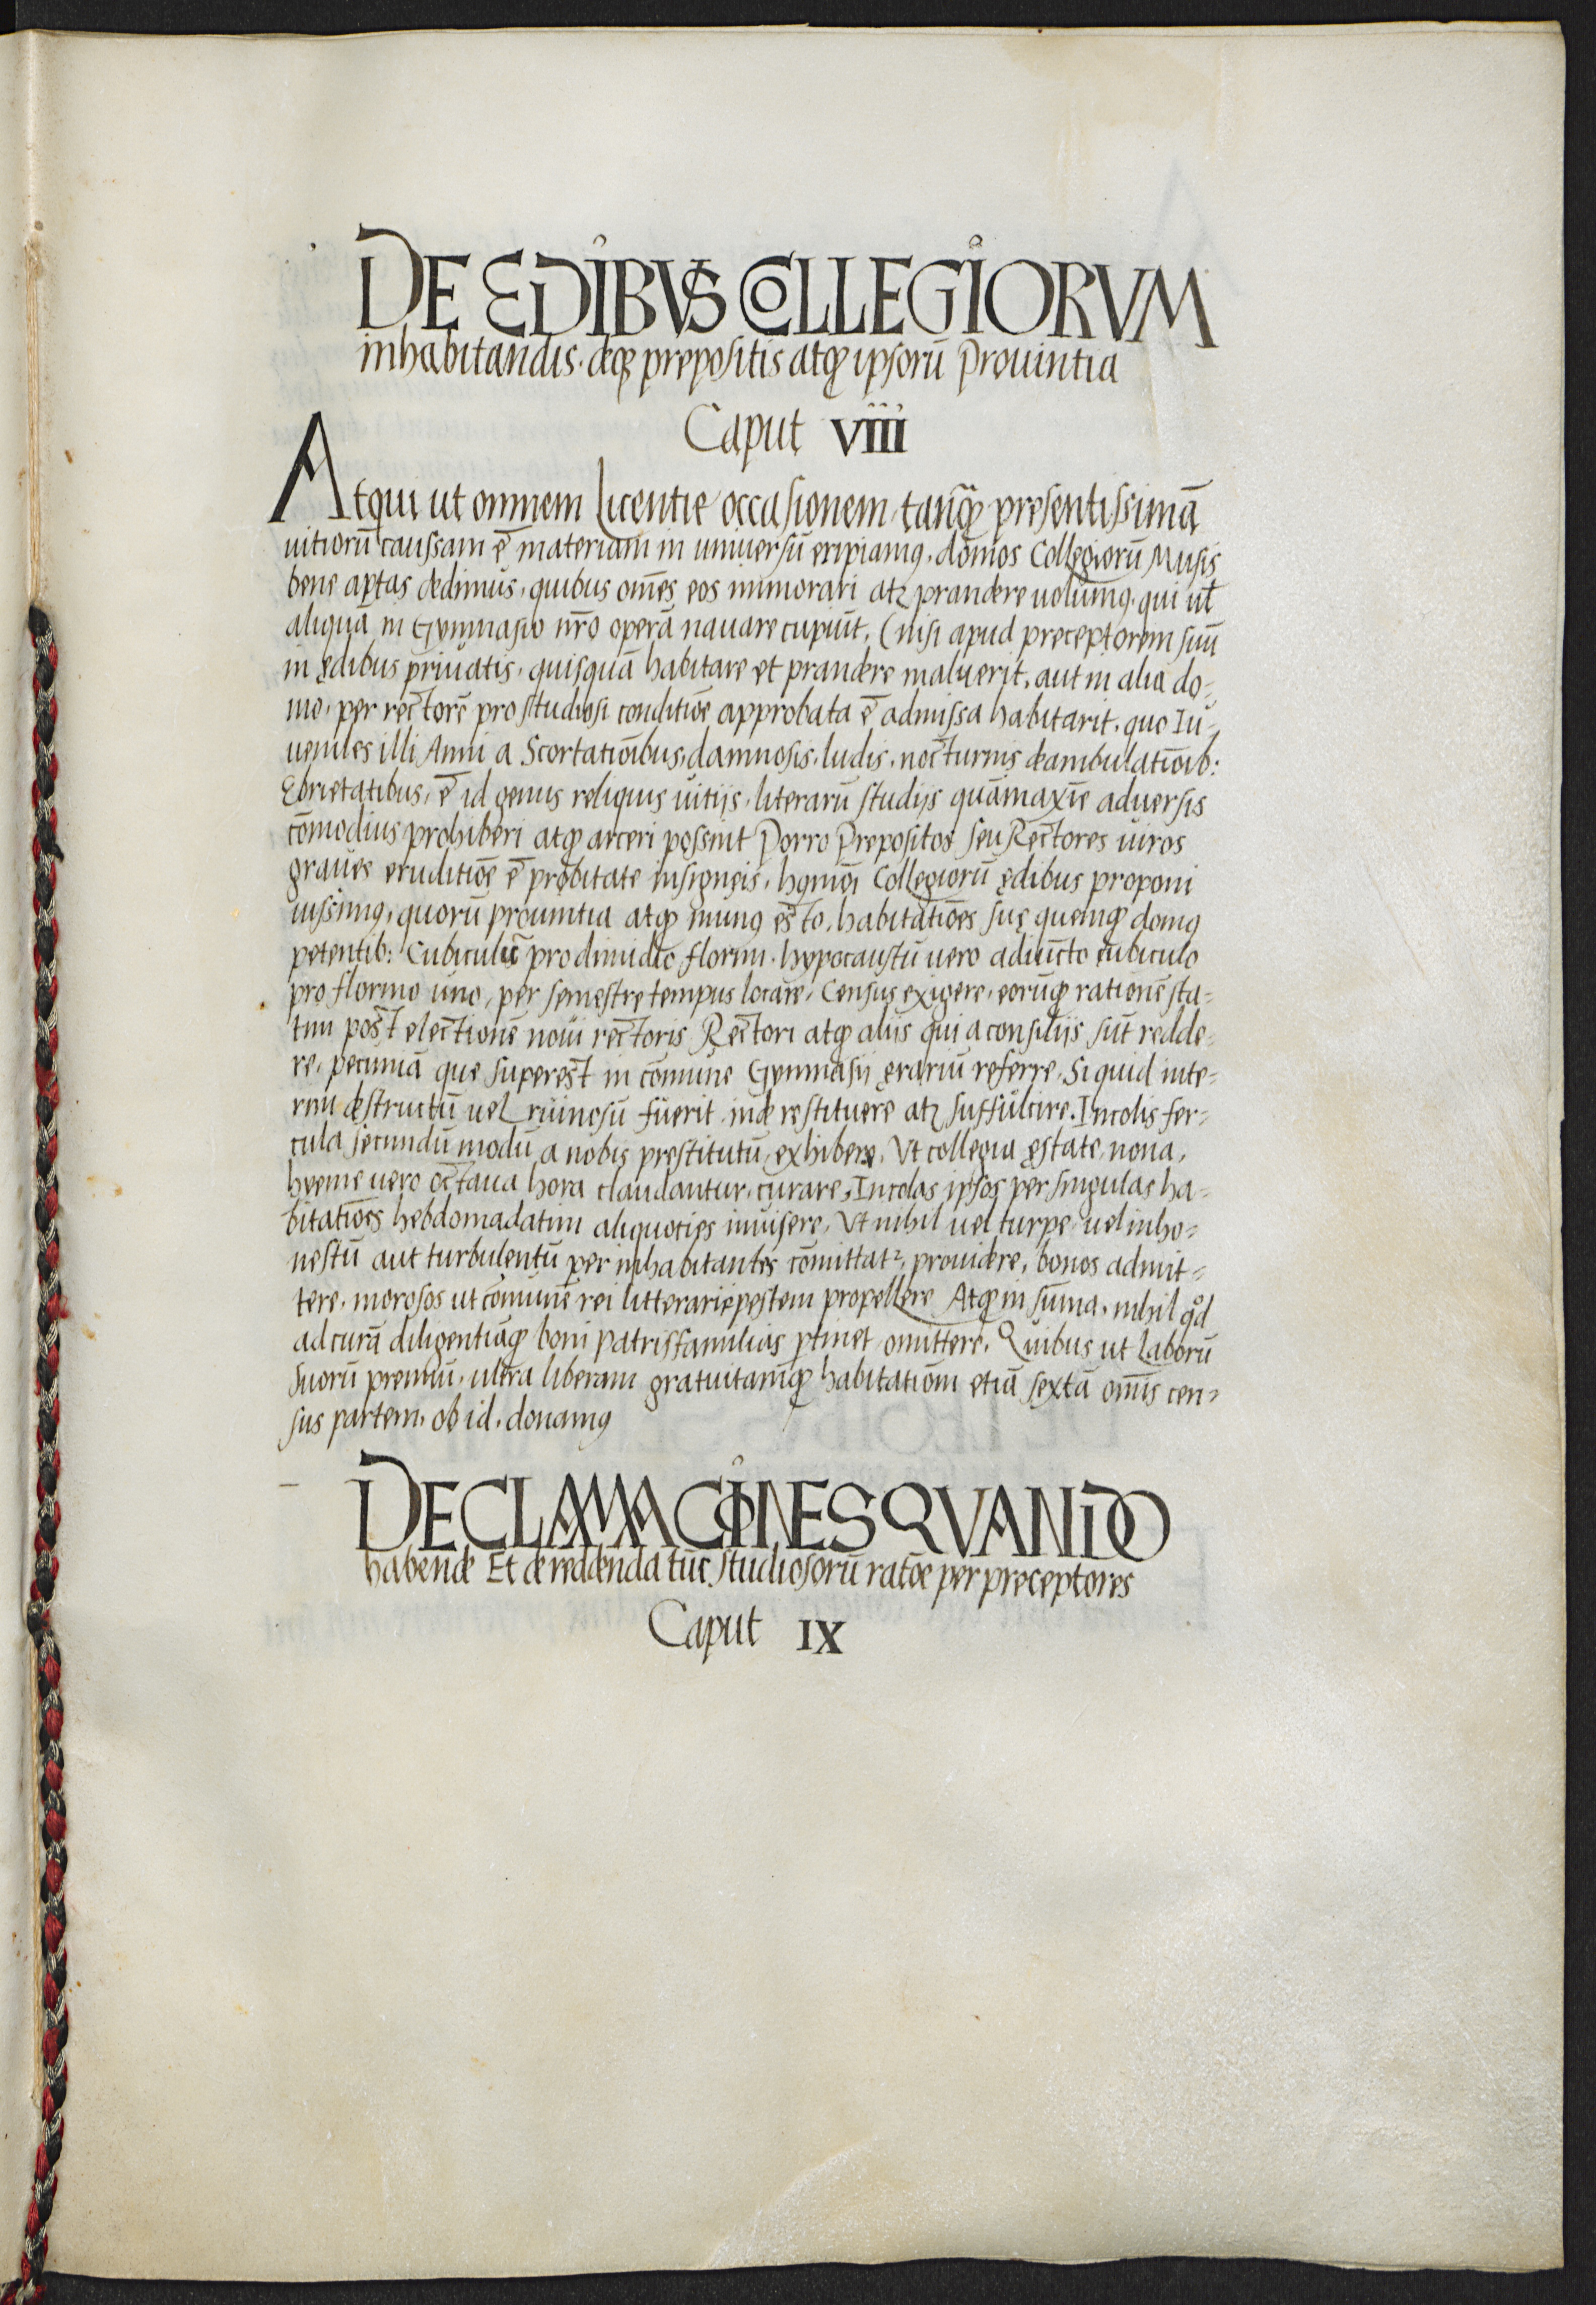 DE EDIBVS COLLEGIORVM
inhabitandis. deq̃ prepositis atq̃ ipsorũ Prouintia
Caput VIIII
Atqui ut omnem Licentie occasionem, tanq̃ presentissimã
uitiorũ caussam ē materiam in uniuersũ eripiamꝯ, domos Collegiorũ Musis
bene aptas dedimus, quibus om̃es eos inmorari atꝫ prandere uolumꝯ, qui ul̃
aliquã in Gymnasio nr̃o operã nauare cupiũt, (nisi apud preceptorem suũ
in ędibus priuatis, quisquã habitare et prandere maluerit, aut in alia do-
mo, per rectorẽ pro studiosi conditiõe approbata ē admissa habitarit, quo Iu-
ueniles illi Anni a Scortatiõibus, damnosis, ludis, nocturnis deambulatiõib:
Ebrietatibus, ē id genus reliquis uitijs, literarũ studijs quãmaxĩe aduersis
cõmodius prohiberi atq̃ arceri possint Porro Prepositos seu Rectores uiros
graues eruditiõe ē probitate insigneis, hꝯmõi Collegiorũ ędibus proponi
iussimꝯ, quorũ prouintia atq̃ munꝯ esto, habitatiões suę quemq̃ domꝯ
petentib: Cubiculũ pro dimidio florini. hypocaustũ uero adiũcto cubiculo
pro florino uno, per semestre tempus locare, Census exigere, eorũq̃ rationẽ sta-
tim post electionẽ noui rectoris Rectori atq̃ alijs qui a consilijs sũt redde-
re, pecuniã que superest in cõmune Gymnasij ęrariũ referre, Si quid inte-
rim destructũ uel ruinosũ fuerit inde restituere atꝫ suffulcire. Incolis fer-
cula secundũ modũ a nobis prestitutũ, exhibere, Vt collegia ęstate, nona,
hyeme uero octaua hora claudantur, curare, Incolas ipsos per singulas ha-
bitatiões hebdomadatim aliquoties inuisere, Vt nihil uel turpe, uel inho-
nestũ aut turbulentũ per inhabitantes cõmittat̃, prouidere, bonos admit-
tere, morosos ut cõmunẽ rei litterarie pestem propellere Atq̃ in sũma, nihil qd̃
ad curã diligentiãq̃ boni patrisfamilias ptinet omittere. Quibus ut Laborũ
suorũ premiũ, ulera liberam gratuitamq̃ habitatiõm etiã sextã om̃is cen-
sus partem, ob id, donamꝯ
DECLAMACIONES QVANDO
habende Et de reddenda tũc studiosorũ ratõe per preceptores
Caput IX